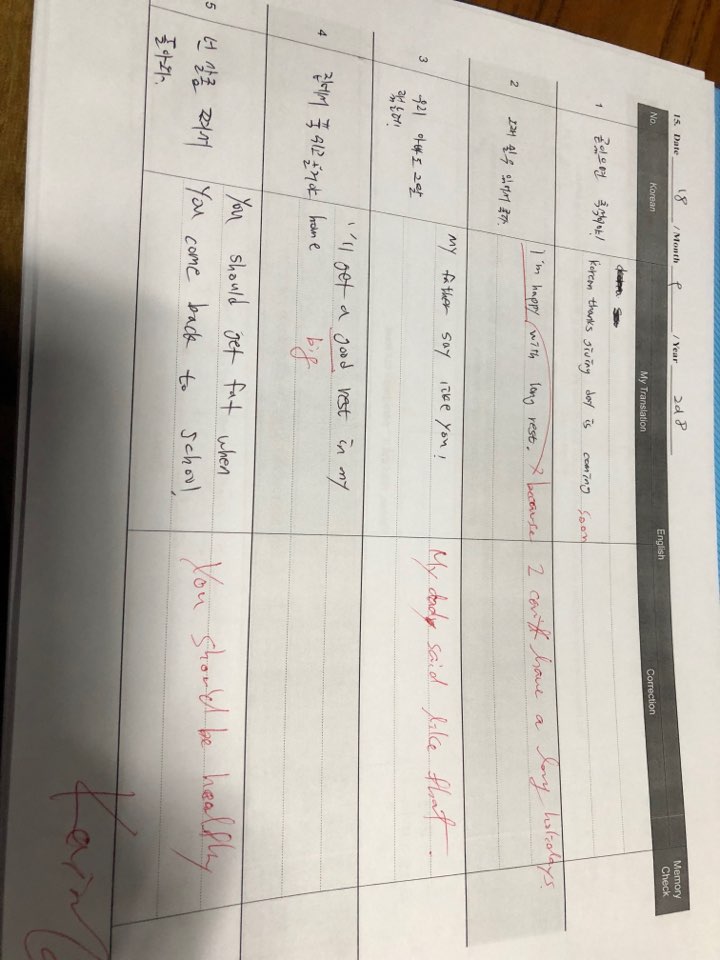 15. Date 18 / Month 9 / Year 2018
No. Korean My Translation English Correction Memory Check
1 곧있으면 추석이야!
Korean thanks giving day is coming soon
2 오래 쉴수 있어서 좋다.
I'm happy with long rest. because I can have a long holidays.
3 우리 아빠도 그말
했는데!
My father say like you!
My dady said like that.
4 집에서 푹 쉬고 올거야
I'll get a good rest in my
home big
5 넌 살좀 쪄서
돌아와.
You should get fat when
You come back to school.
You should be healthy